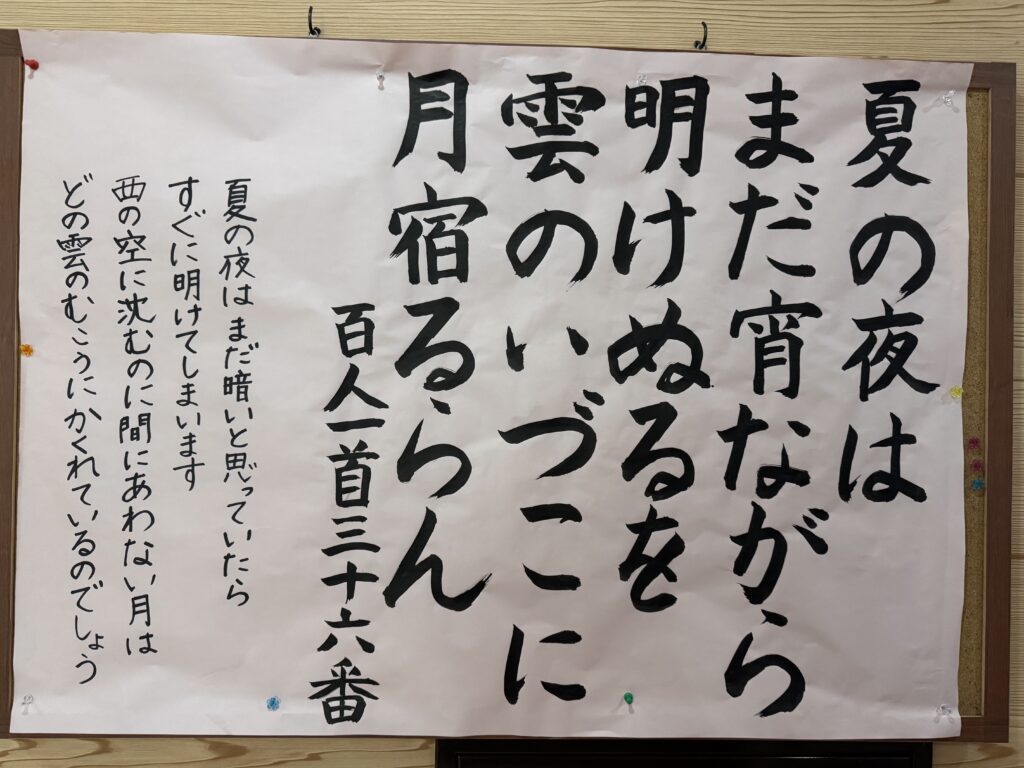 夏の夜は
まだ宵ながら
明けぬるを
雲のいづこに
月宿るらん
百人一首三十六番
夏の夜は まだ暗いと思っていたら
すぐに明けてしまいます
西の空に沈むのに間にあわない月は
どの雲のむこうにかくれているのでしょう